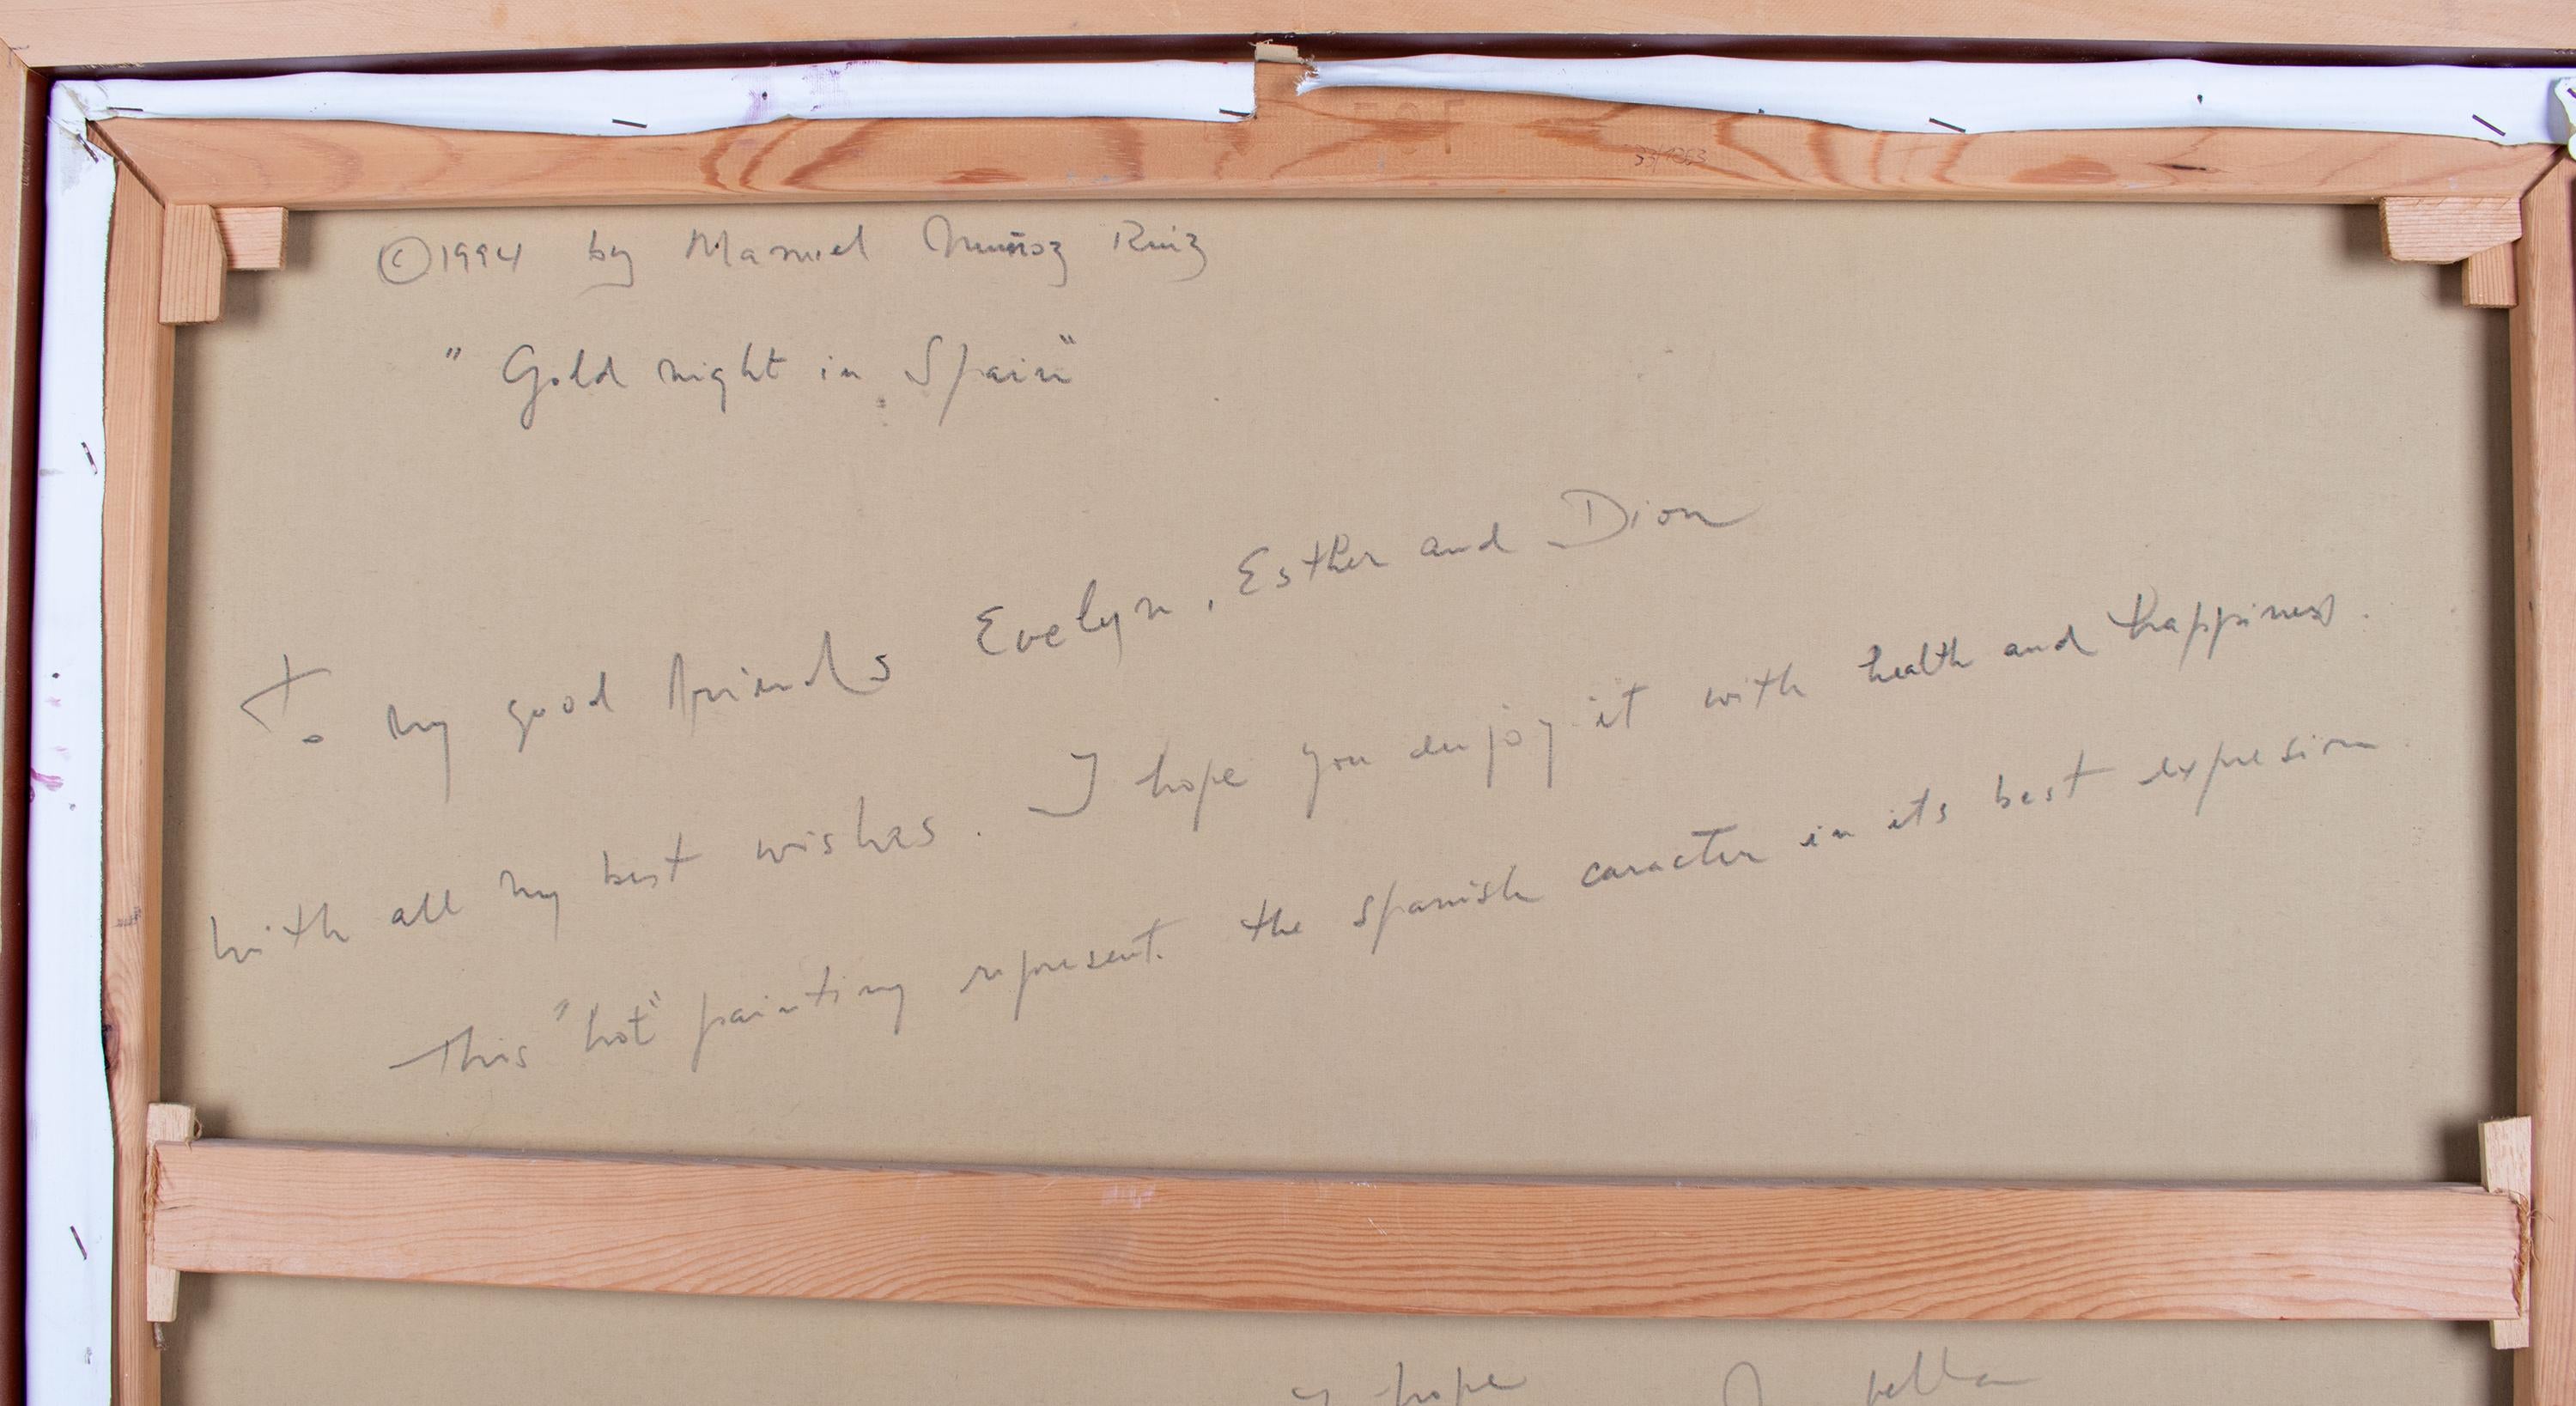 ©1994 by Manuel Muñoz Ruiz
"Gold night in Spain"
To my good friends Evelyn, Esther and Dion
with all my best wishes. I hope you enjoy it with health and happiness.
This "hot" painting represent the spanish caracter in its best expresion
I hope